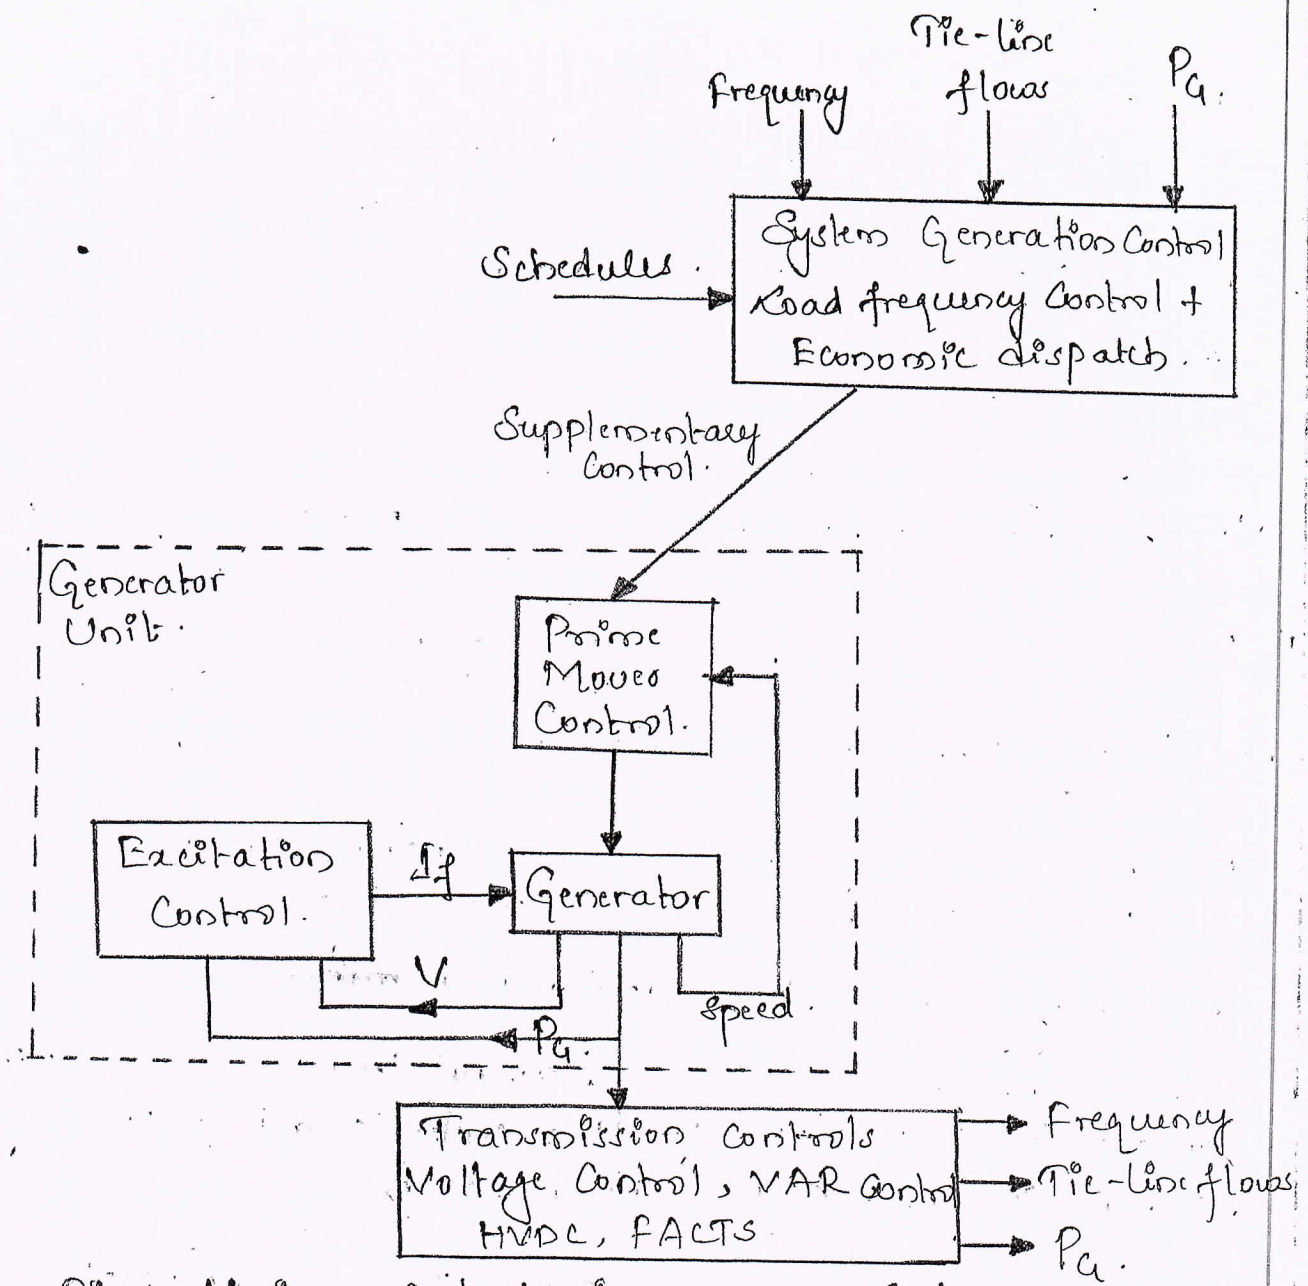 Tie-line
flows
Frequency
PG.
Schedules.
System Generation Control
Load frequency Control +
Economic dispatch.
Supplementary
Control.
Generator
Unit.
Prime
Mover
Control.
Excitation
Control.
If
Generator
V
Speed.
PG.
Transmission Controls
Voltage Control, VAR Control
HVDC, FACTS
Frequency
Tie-line flows
PG.